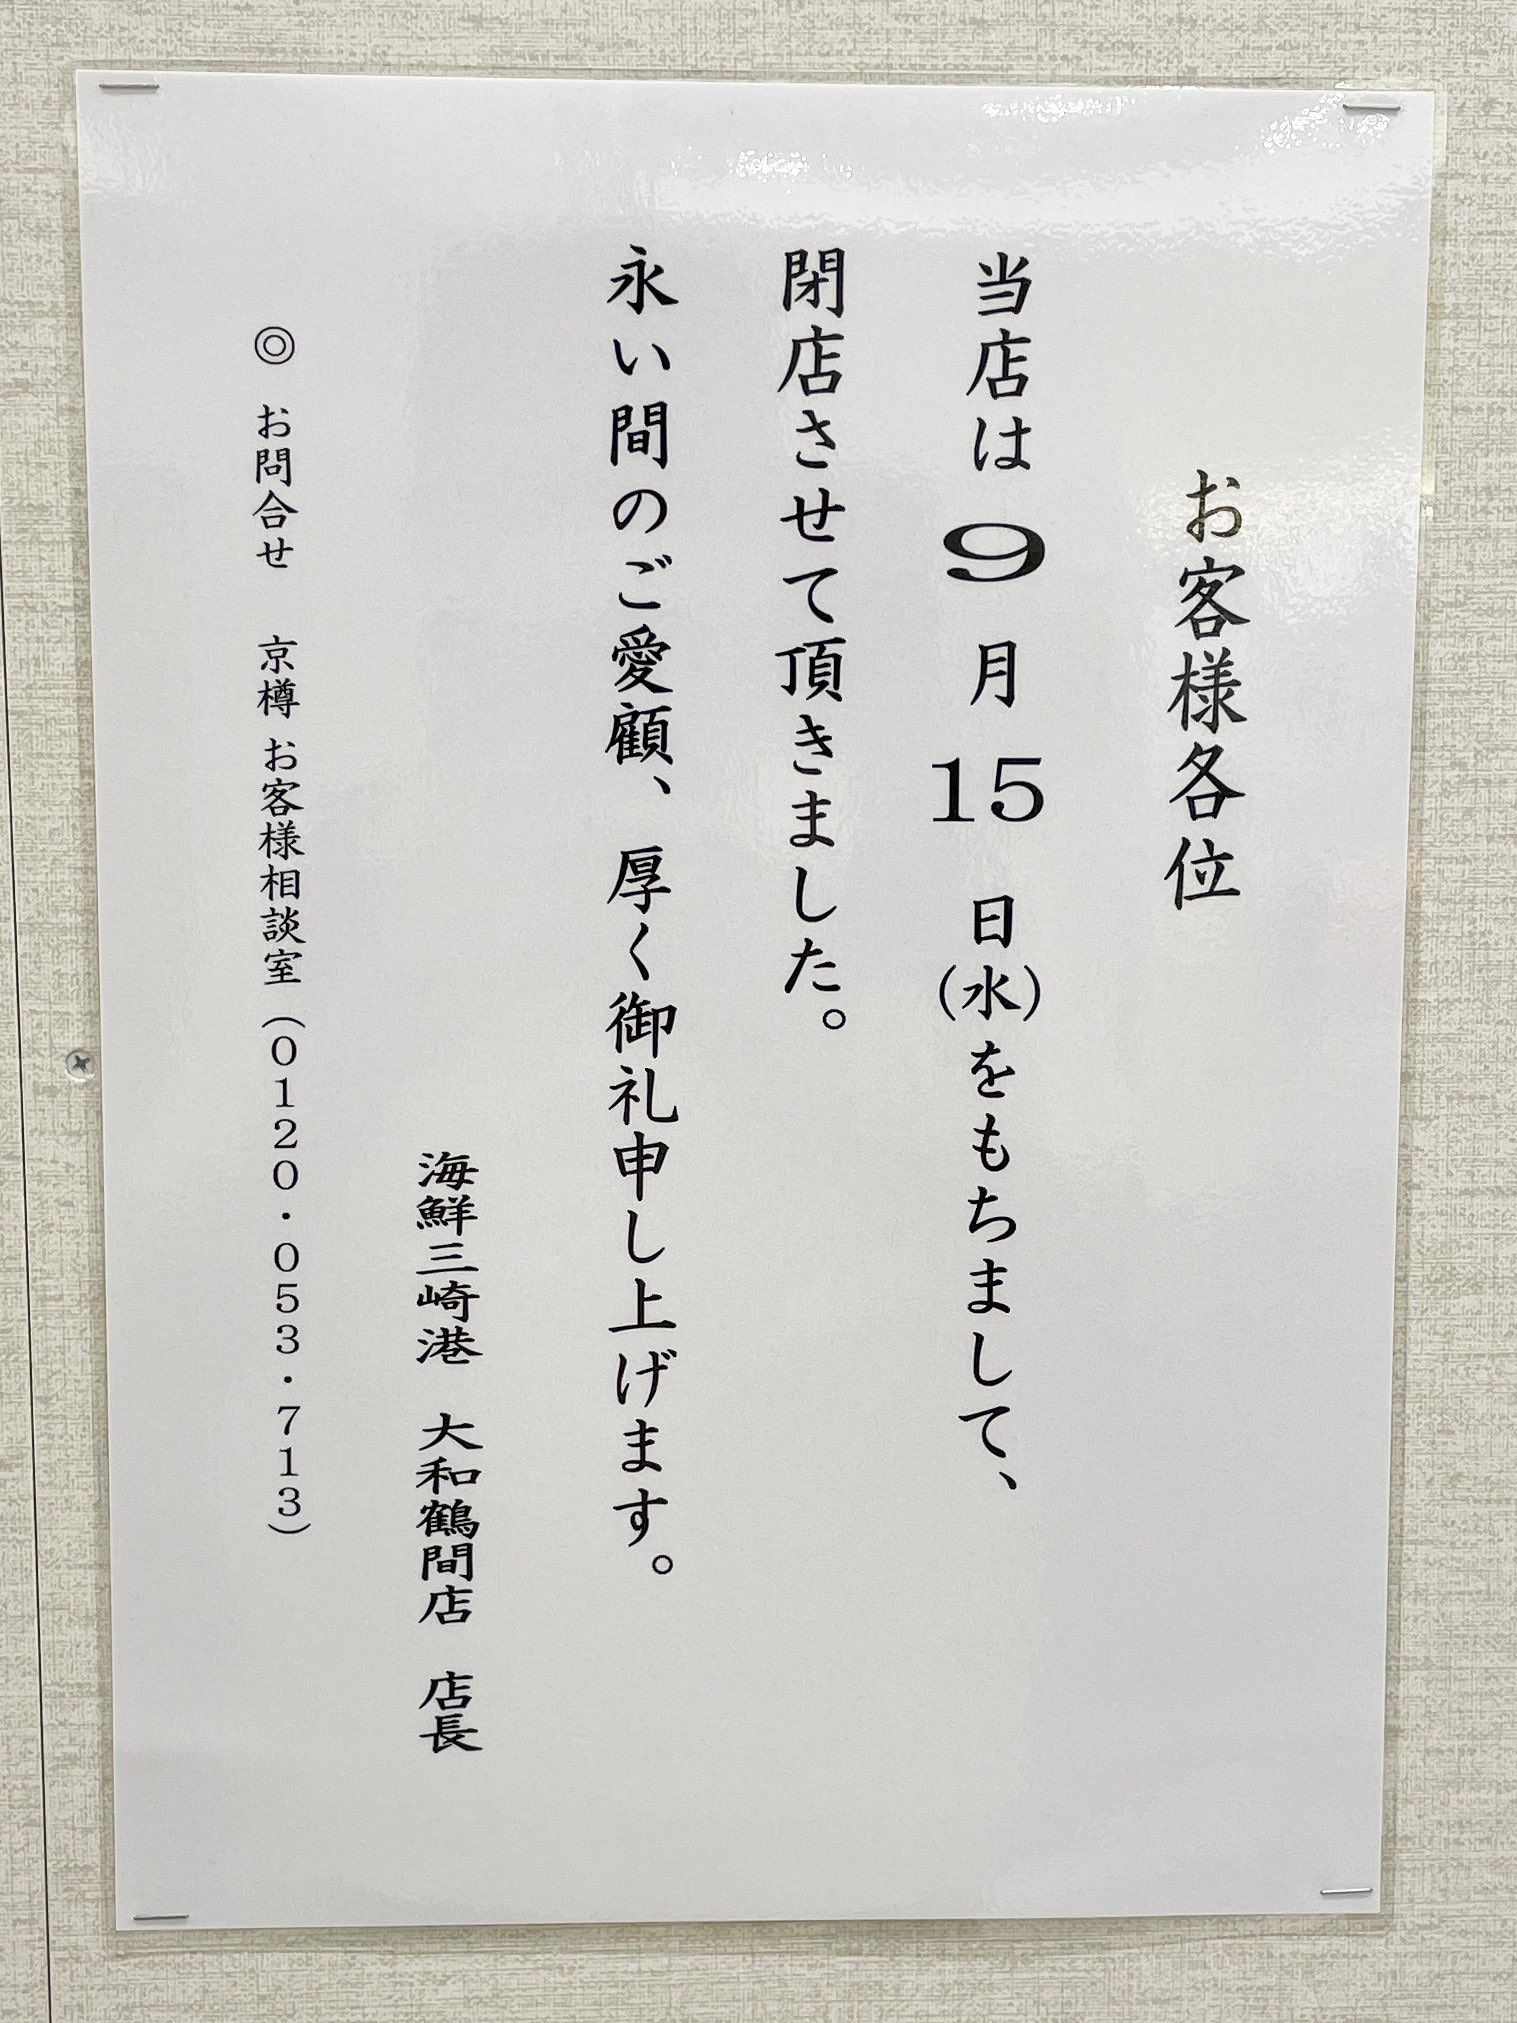 お客様各位
当店は9月15日(水)をもちまして、
閉店させて頂きました。
永い間のご愛顧、厚く御礼申し上げます。
海鮮三崎港　大和鶴間店　店長
◎　お問合せ　京樽 お客様相談室（０１２０・０５３・７１３）